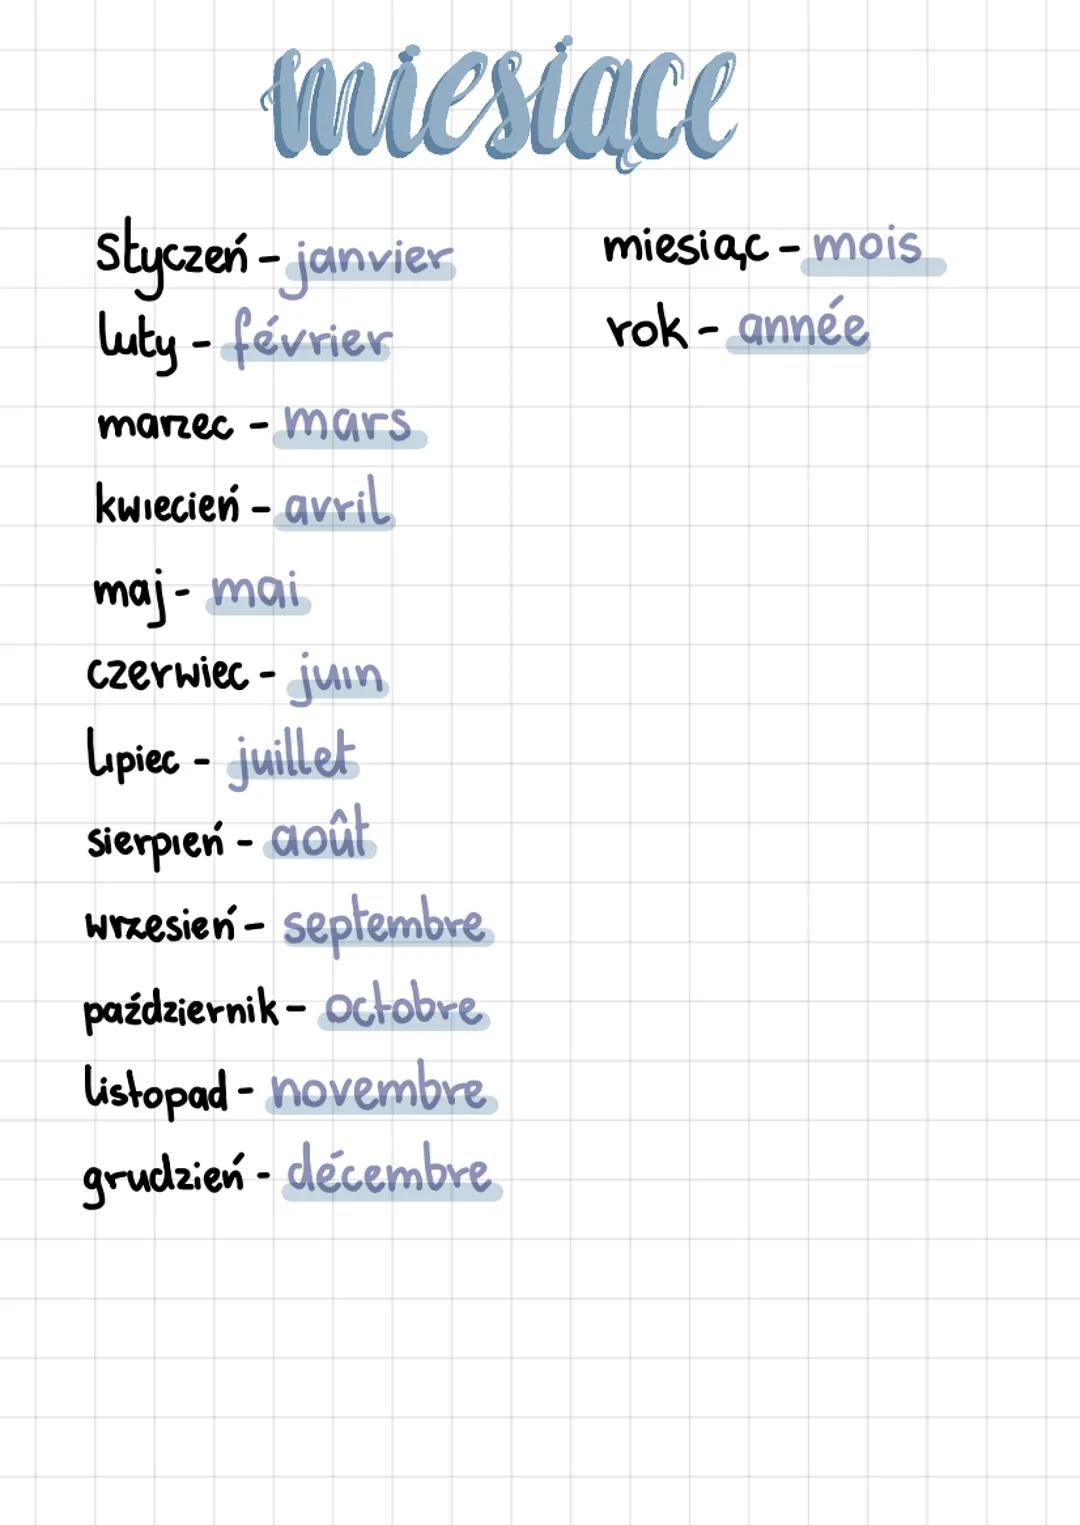 miesiące
Styczeń - janvier
luty - février
marzec - mars
kwiecień - avril
maj - mai
czerwiec - juin
lipiec - juillet
sierpień - août
wrzesień - septembre
październik - octobre
listopad - novembre
grudzień - décembre
miesiąc - mois
rok - année